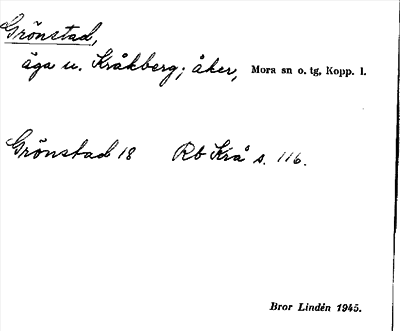 Grönstad,
äga u. Kråkberg; åker, Mora sn o. tg, Kopp. l.
Grönstad 18 Rb Krå s. 116.
Bror Lindén 1945.